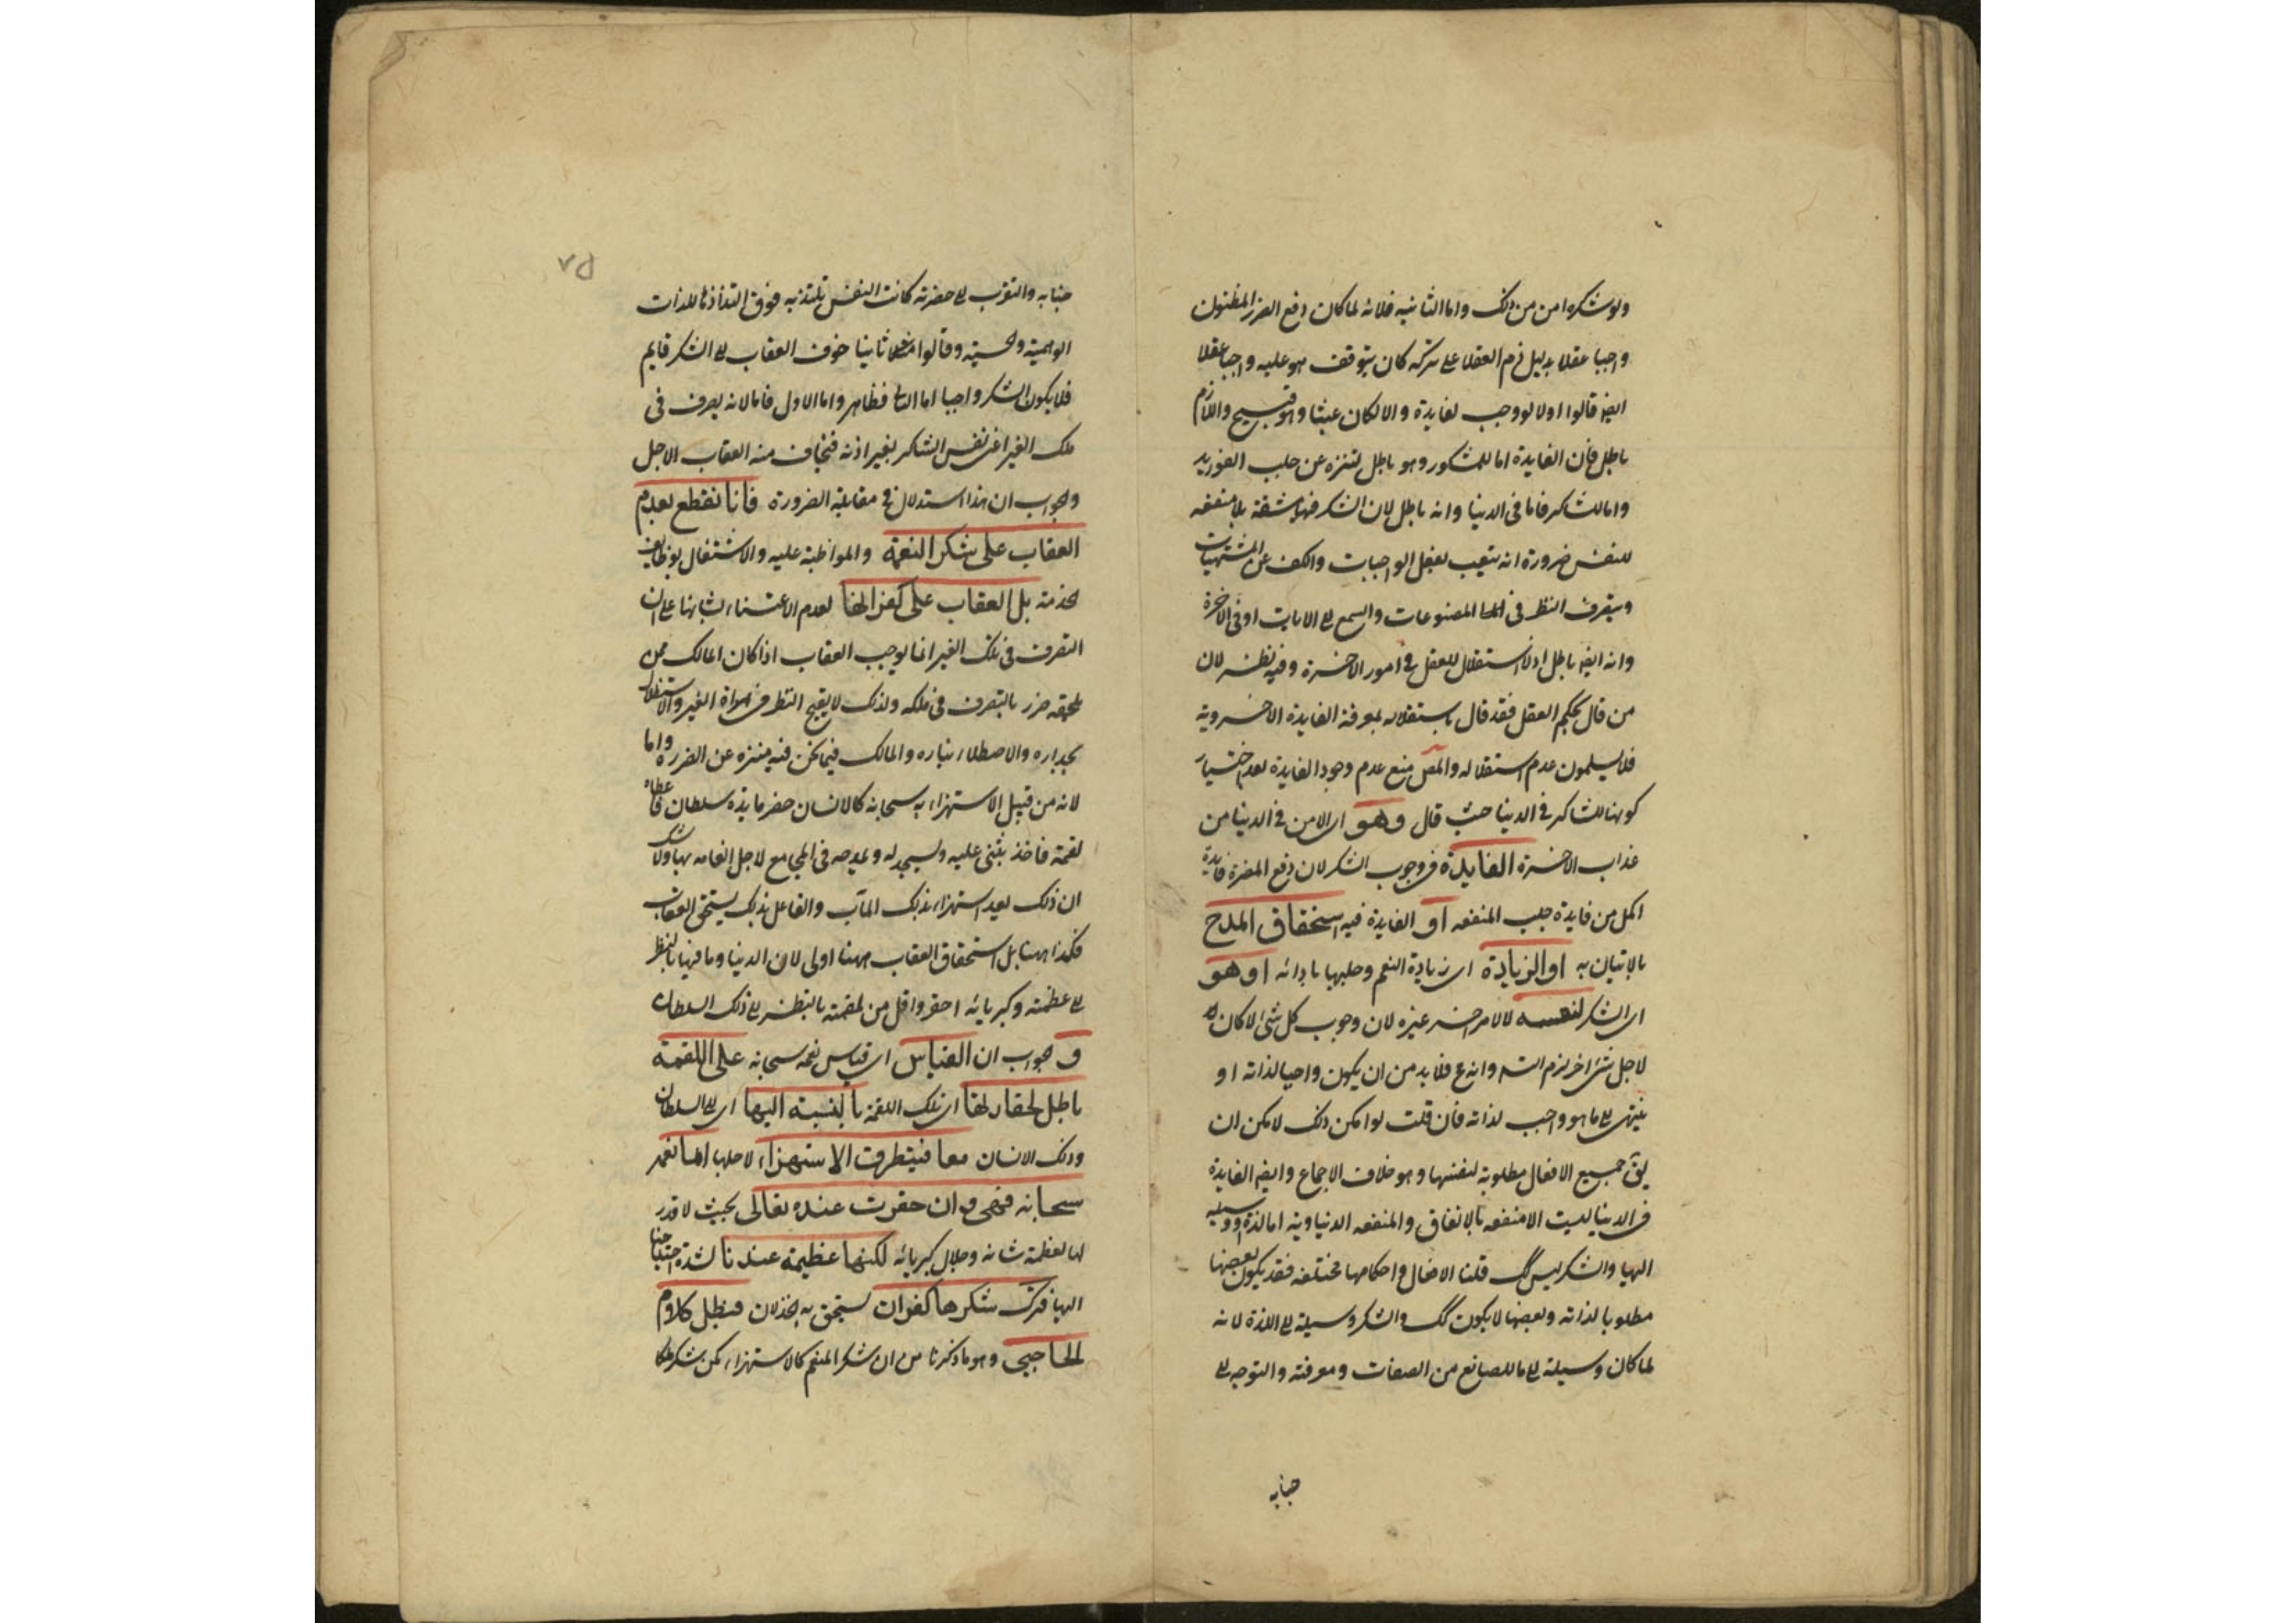 ولو شكر امن من ذلك واما الثانيه فلانه لما كان دفع الضرر المظنون
واجبا عقلا بدليل ذم العقلا على تركه كان يتوقف هو عليه واجبا عقلا
ايضا قالوا اولا لو وجب لفايدة والا لكان عبثا وهو قبيح واللازم
باطل فان الفايدة اما للمشكور وهو باطل لتنزه عن جلب الفوايد
واما للشاكر فاما فى الدنيا وانه باطل لان الشكر فيها مشقة بلا منفعه
للنفس ضرورة انه يتعب بفعل الواجبات والكف عن المشتهيات
ويصرف النظر فى المصنوعات والسمع الى الايات او فى الاخرة
وانه ايضا باطل اذ لا استقلال للعقل فى امور الاخرة وفيه نظر لان
من قال بحكم العقل فقد قال باستقلاله بمعرفة الفايدة الاخروية
فلا يسلمون عدم استقلاله والمص منع عدم وجود الفايدة بعد اختيار
كونها للشاكر فى الدنيا حيث قال وهو اى الامن فى الدنيا من
عذاب الاخرة الفايدة فى وجوب الشكر لان دفع المضرة فايدة
اكمل من فايدة جلب المنفعه او الفايدة فيه استحقاق المدح
بالاتيان به او الزيادة اى زيادة النعم وجلبها بادائه او هو
اى الشكر لنفسه لا لامر اخر غيره لان وجوب كل شئ لا كان
لاجل شئ اخر لزم التسه وانه ع فلا بد من ان يكون واجبا لذاته او
ينتهى الى ما هو واجب لذاته فان قلت لو امكن ذلك لامكن ان
يق جميع الافعال مطلوبة لنفسها وهو خلاف الاجماع وايضا الفايدة
فى الدنيا ليست الا منفعه بالاتفاق والمنفعه الدنياوية اما لذة او وسيله
اليها والشكر ليس كك قلنا الافعال واحكامها مختلفه فقد يكون بعضها
مطلوبا لذاته وبعضها لا يكون كك والشكر وسيلة الى اللذة لانه
لما كان وسيلة الى ما للصانع من الصفات ومعرفته والتوجه الى
جنابه
٧٥
جنابه والتقرب الى حضرته كانت النفس تلتذ به فوق التذاذها للذات
الوهمية والحسية وقالوا ثانيا خوف العقاب الى الشكر قايم
فلا يكون الشكر واجبا اما التالى فظاهر واما الاول فاما لانه يصرف فى
ملك الغير اعنى نفس الشاكر بغير اذنه فيخاف منه العقاب الاجل
والجواب ان هذا استدلال فى مقابلة الضرورة فانا نقطع بعدم
العقاب على شكر النعمة والمواظبة عليه والاشتغال بوظايف
الخدمة بل العقاب على كفرانها لعدم الاعتناء بشانها على ان
التصرف فى ملك الغير انما يوجب العقاب اذا كان المالك ممن
يلحقه ضرر بالتصرف فى ملكه ولذلك لا يقبح النظر فى مراة الغير والاستظلال
بجداره والاصطلاء بناره والمالك فيما نحن فيه منزه عن الضرر واما
لانه من قبيل الاستهزاء به سبحانه كالانسان حضر مايدة سلطان فاعطاه
لقمة فاخذ يثنى عليه ويسجد له ويمدحه فى المجامع لاجل انعامه بها ولا شك
ان ذلك يعد استهزاء بذلك المآب والفاعل بذلك يستحق العقاب
فكذا ههنا بل استحقاق العقاب ههنا اولى لان الدنيا وما فيها بالنظر
الى عظمته وكبريائه احقر واقل من لقمته بالنظر الى ذلك السلطان
و الجواب ان القياس اى قياس نعمه سبحانه على اللقمة
باطل لحقارتها اى تلك اللقمة بالنسبة اليها اى الى السلطان
وذلك الانسان معا فيتطرق الاستهزاء لاجلها اما نعمه
سبحانه فهى وان حقرت عنده تعالى بحيث لا قدر
لها لعظمة شانه وجلال كبريائه لكنها عظيمة عندنا لشدة احتياجنا
اليها فترك شكرها كفران يستحق به الخذلان فبطل كلام
الحاجبى وهو ما ذكرنا من ان شكر المنعم كالاستهزاء لكن شكر